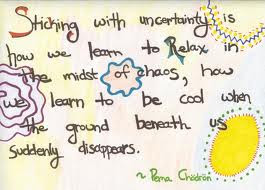 Sticking with uncertainty is
how we learn to Relax in
the midst of chaos, how
we learn to be cool when
the ground beneath us
suddenly disappears.
~ Pema Chödrön